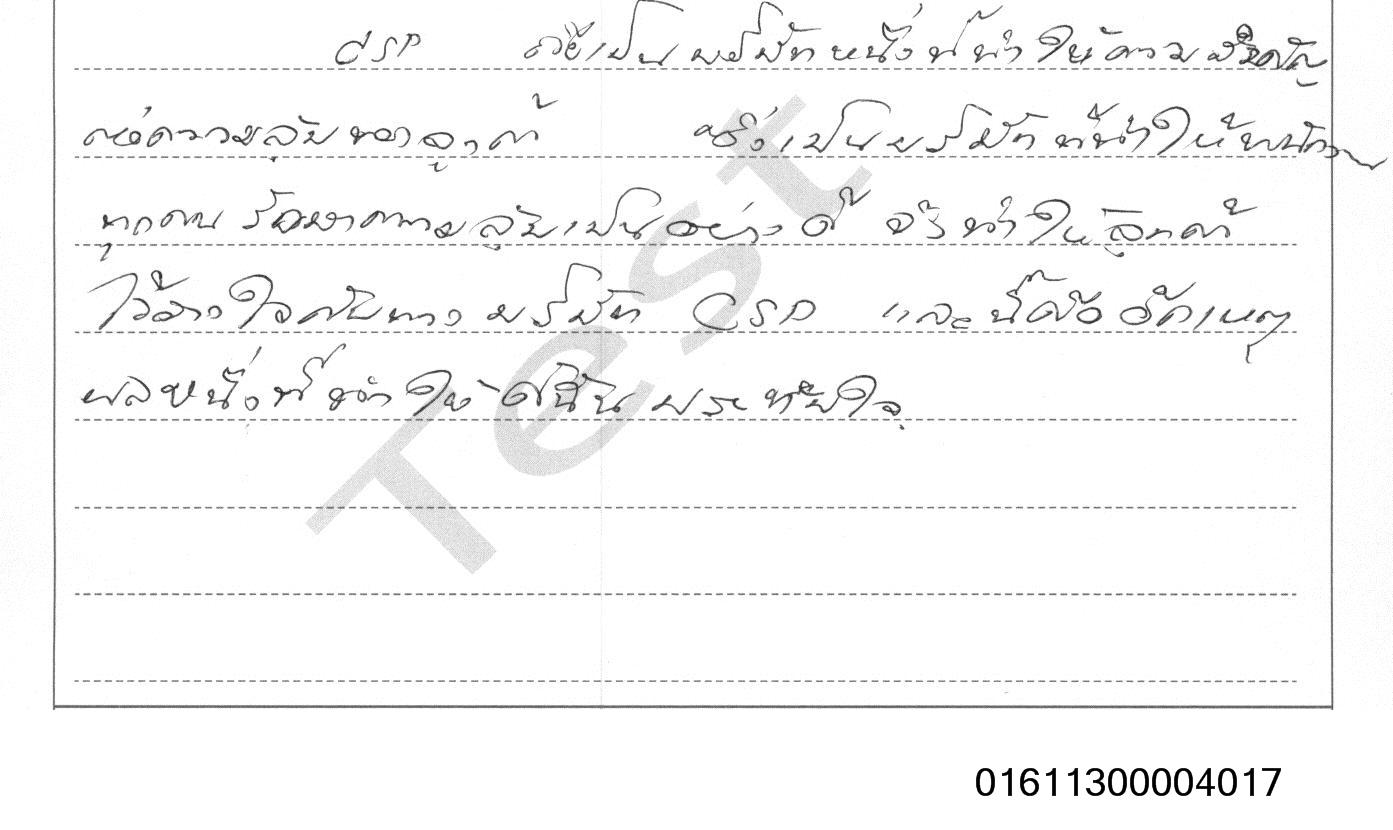 CSP ถือเป็นบริษัทหนึ่งที่ทำให้ความสำคัญ
ต่อความลับของลูกค้า ซึ่งเป็นบริษัทที่ทำให้พนักงาน
ทุกคนรักษาความลับเป็นอย่างดี จึงทำให้ลูกค้า
ไว้วางใจกับทางบริษัท CSP และนี่คืออีกเหตุ
ผลหนึ่งที่ทำให้ดิฉันประทับใจ
Test
01611300004017